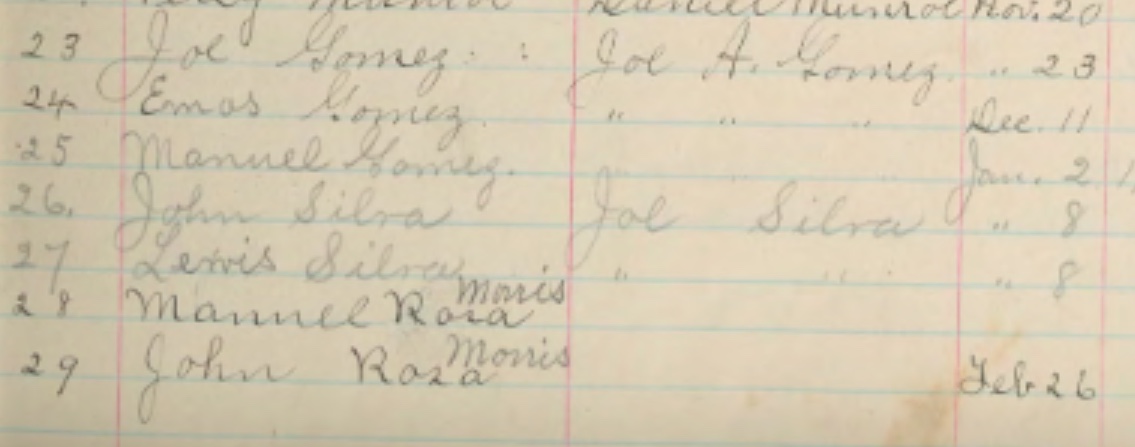 Munroe Daniel Munroe Nov. 20
23 Joe Gomez. : Joe A. Gomez. " 23
24 Emos Gomez. " " " Dec. 11
25 Manuel Gomez. " " " Jan. 2
26. John Silva Joe Silva " 8
27 Lewis Silva " " " 8
28 Manuel Roza Morris
29 John Roza Morris Feb 26